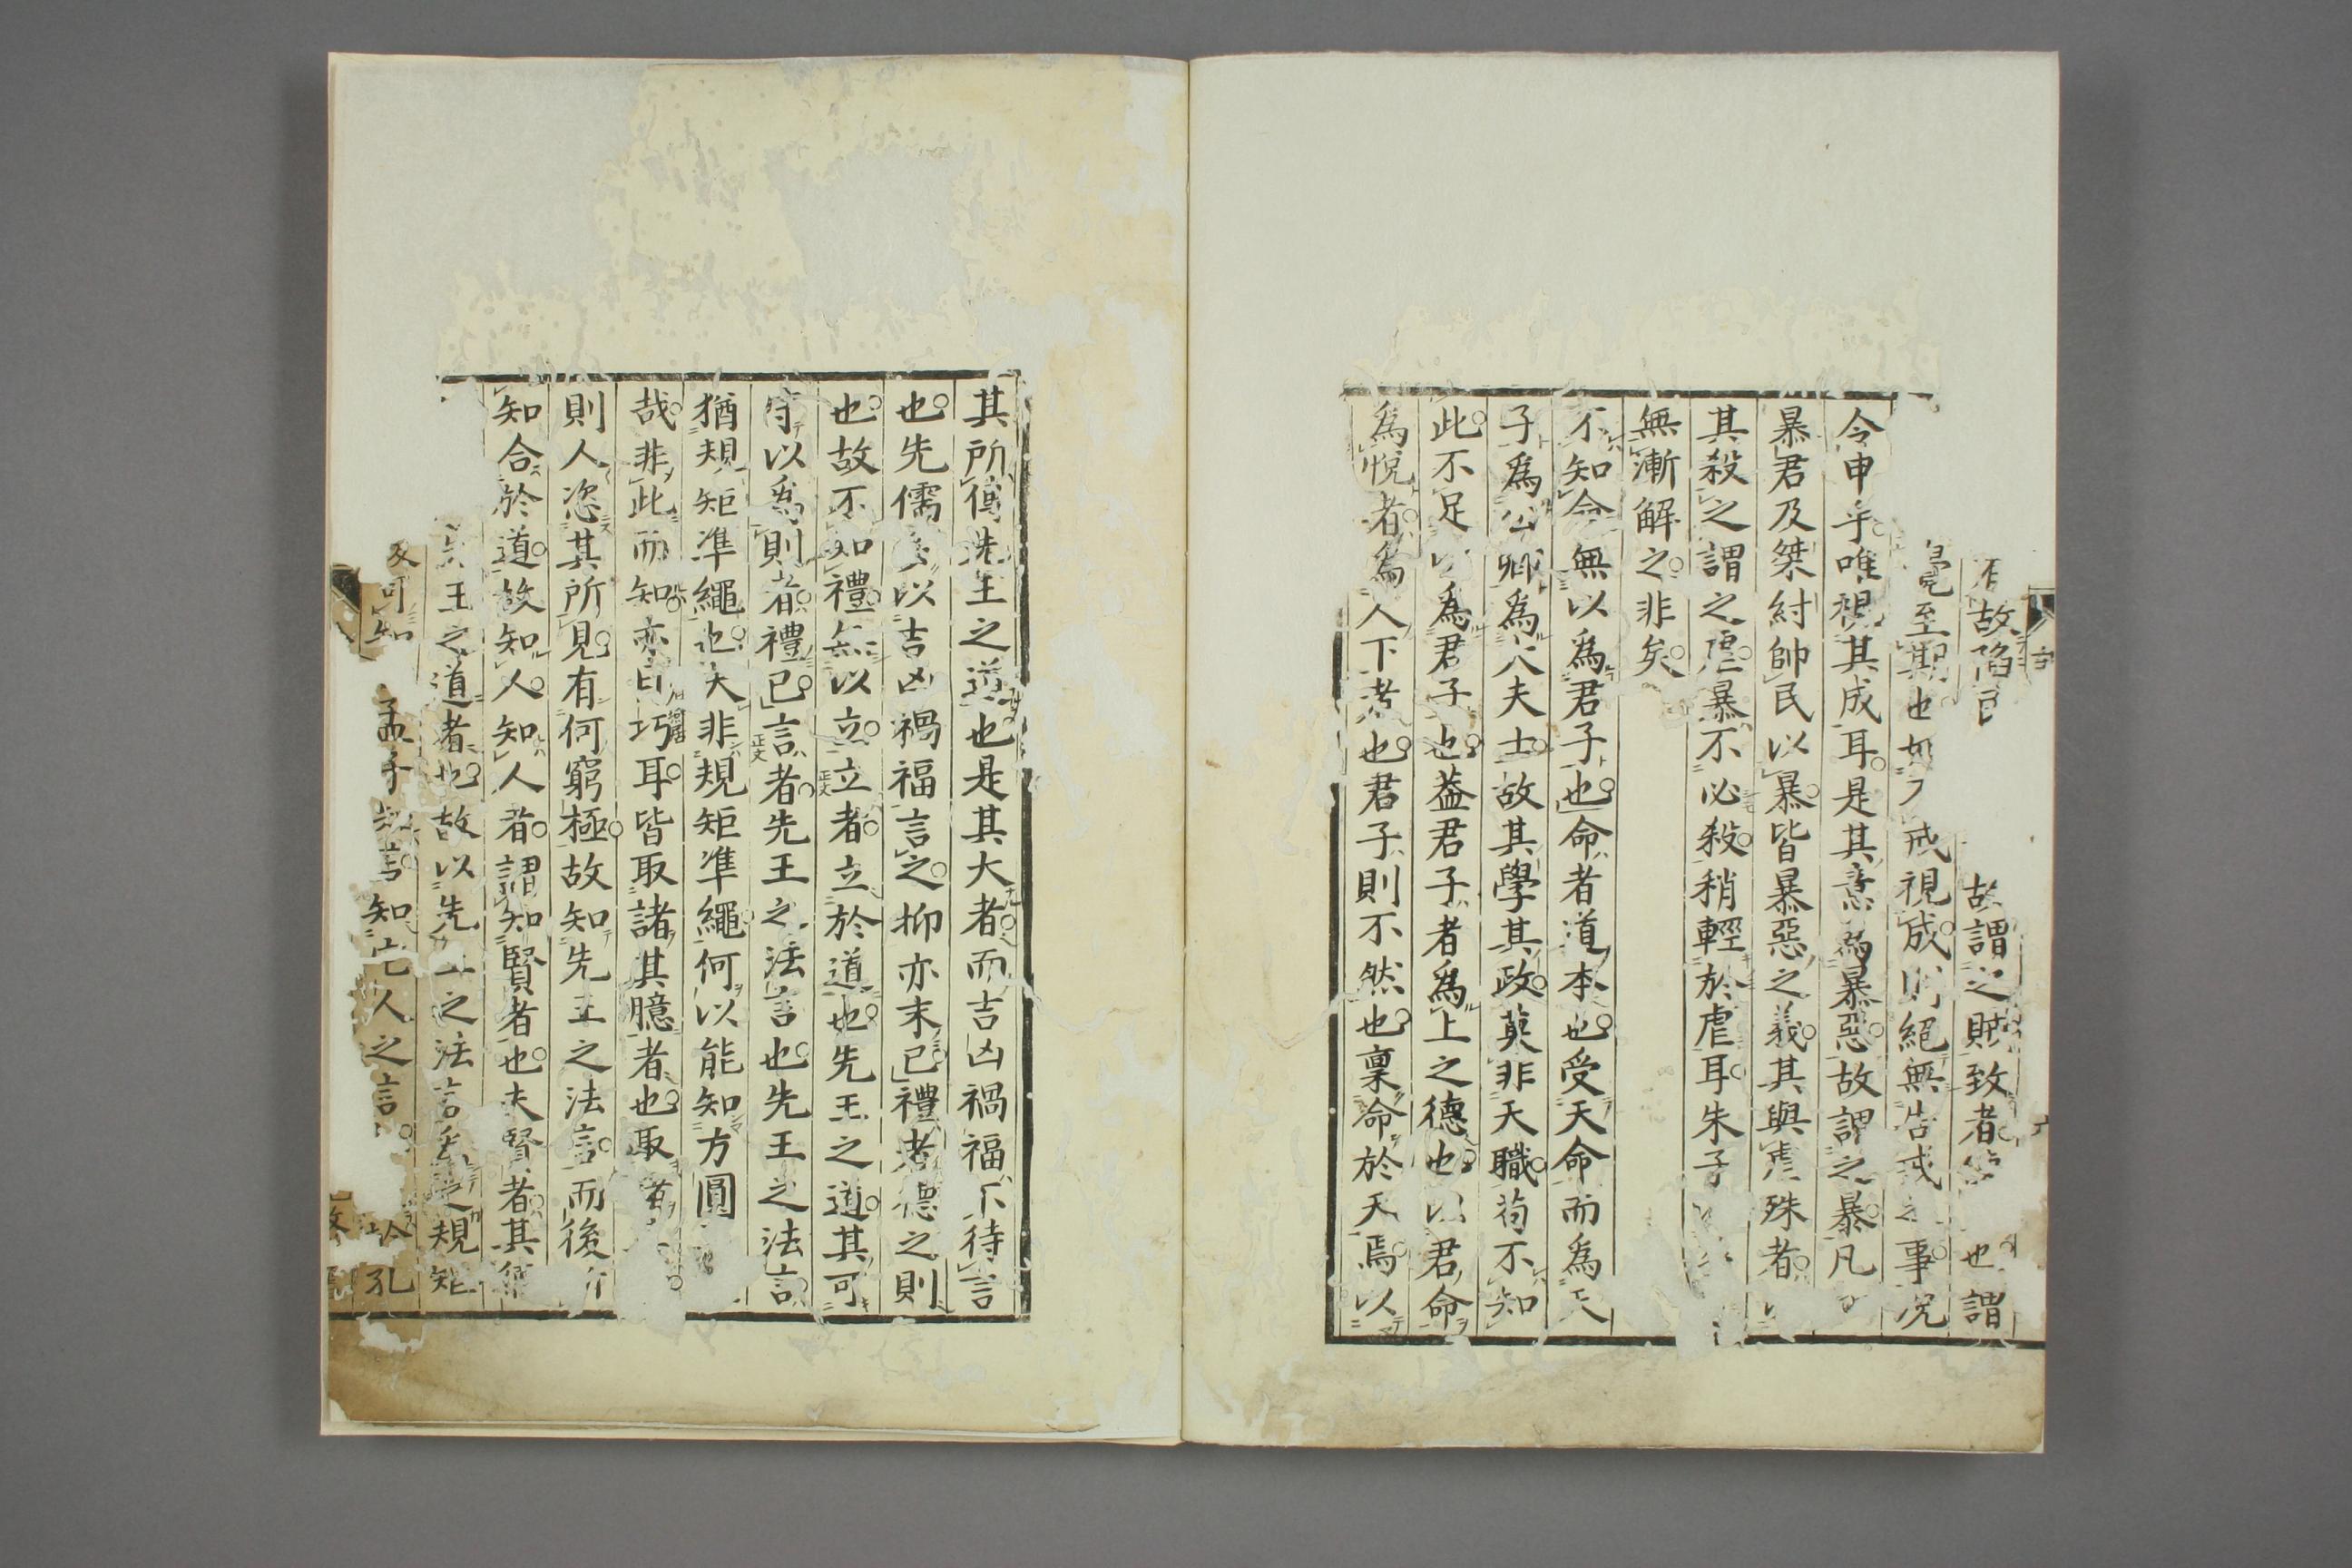 故陷民 故謂之賊致者 也謂
至期也如 戒視成則絕無告戒之事况
今申乎唯視其成耳是其意為暴惡故謂之暴凡
暴君及桀紂帥民以暴皆暴惡之義其與虐殊者
其殺之謂之虐暴不必殺稍輕於虐耳朱子
無漸解之非矣
不知命無以爲君子也命者道本也受天命而爲天
子爲公卿爲大夫士故其學其政莫非天職苟不知
此不足以爲君子也蓋君子者爲上之德也以君命
爲悅者爲人下者也君子則不然也稟命於天焉以
其所傳先王之道也是其大者而吉凶禍福不待言
也先儒以吉凶禍福言之抑亦末已禮者德之則
也故不知禮無以立立者立於道也先王之道其可
守以爲則者禮已言者先王之法言也先王之法言
猶規矩準繩也夫非規矩準繩何以能知方圓
哉非此而知亦 巧耳皆取諸其臆者也取
則人恣其所見有何窮極故知先王之法言而後
知合於道故知人知人者謂知賢者也夫賢者其
王之道者也故以先王之法言 之規矩
可知 孟子 言知它人之言 孔